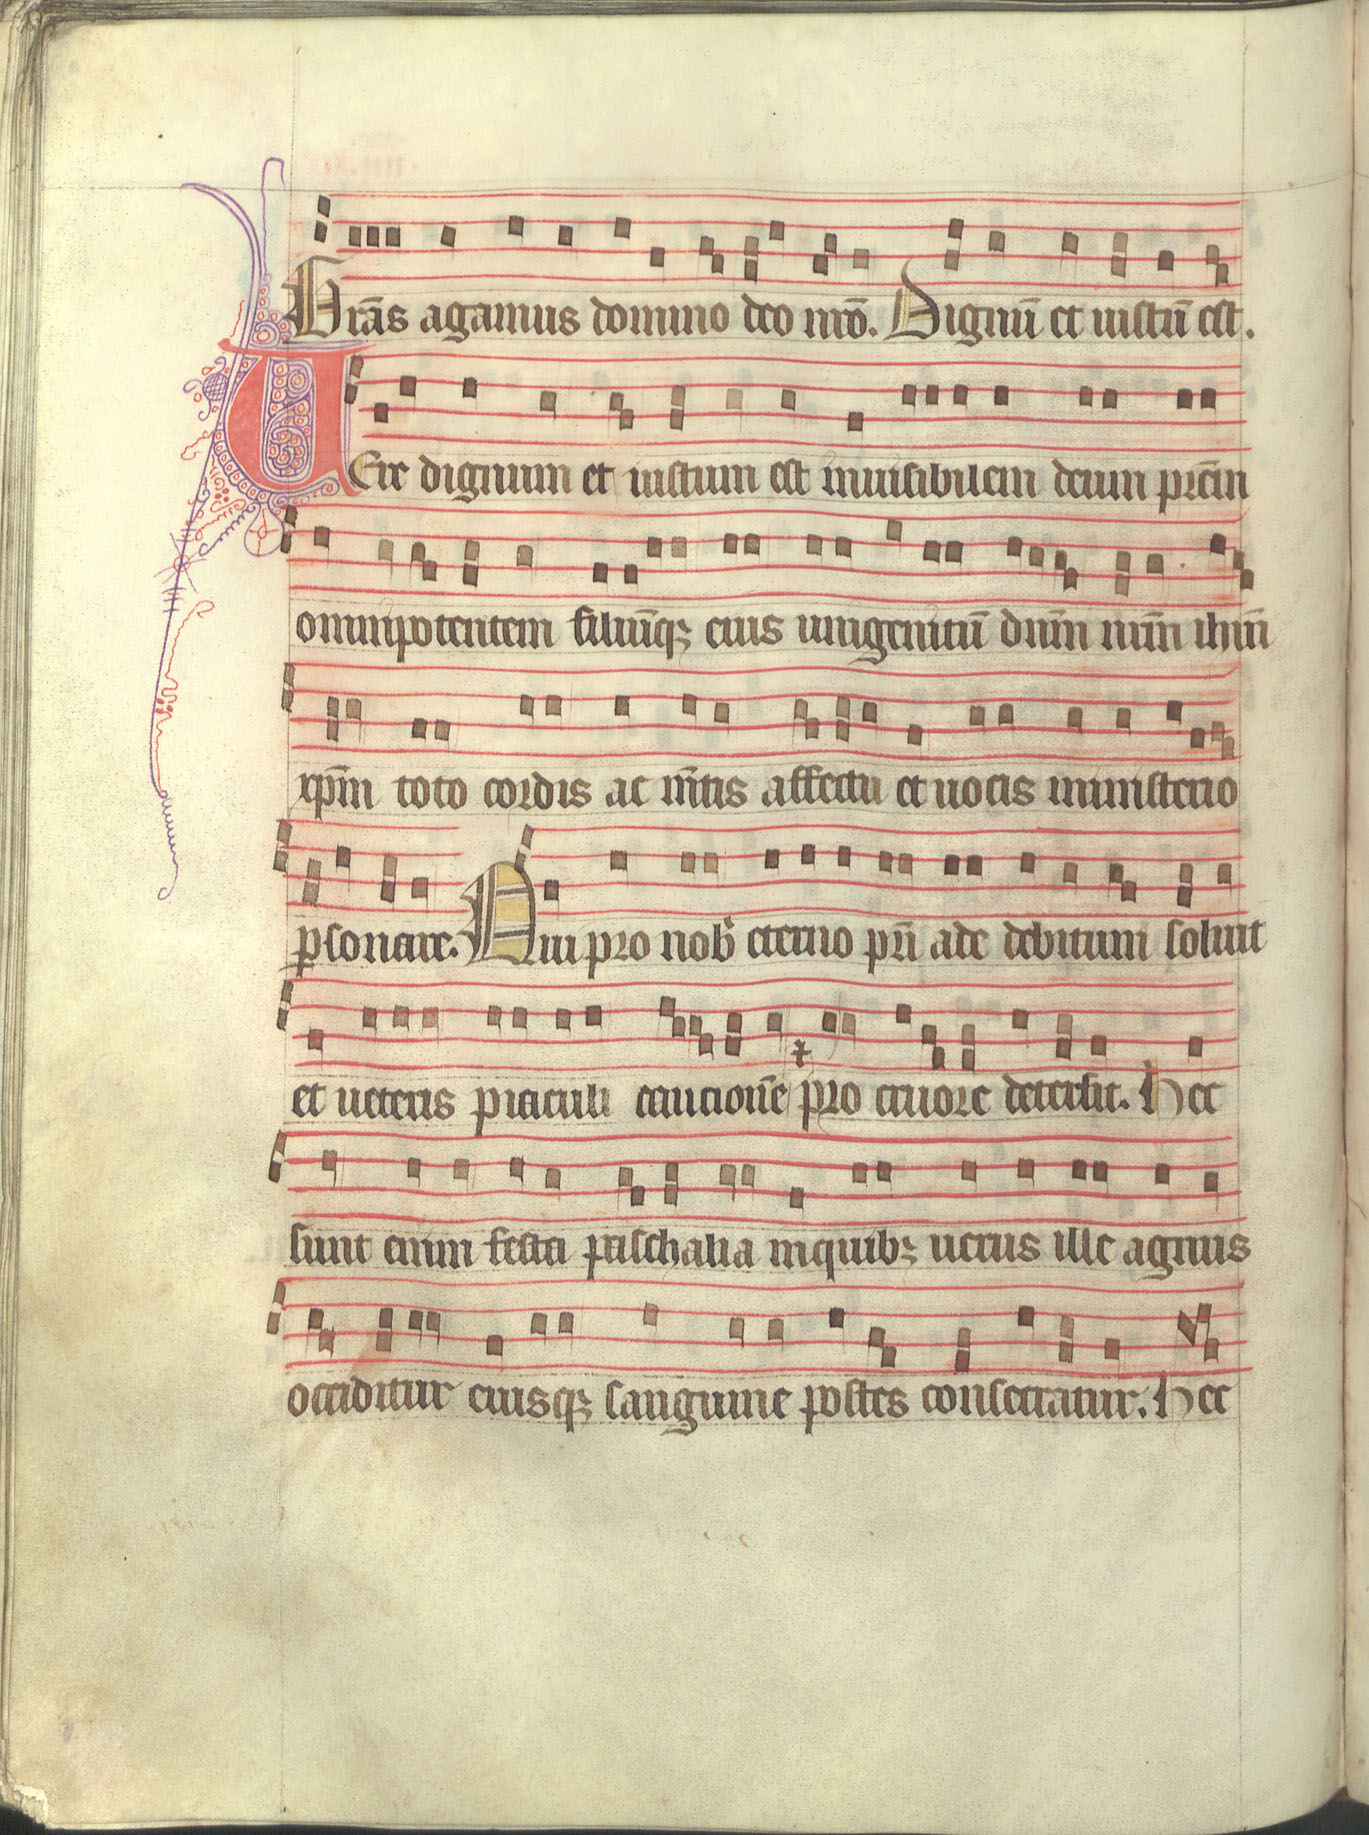 Grãs agamus domino deo nrõ. Dignũ et iustũ est.
VEre dignum et iustum est inuisibilem deum prem̃ in
omnipotentem filiũq; eius unigenitũ dnm̃ nrm̃ ihm̃
xpm̃ toto cordis ac mẽtis affectu et uocis ministerio
ꝑsonare. Qui pro nob̾ eterno pri̾ ade debitum soluit
et ueteris piaculi caucionẽ pro cruore detersit. Hec
sunt enim festa paschalia inquib; uerus ille agnus
occiditur eiusq; sanguine postes consecratur. Hec